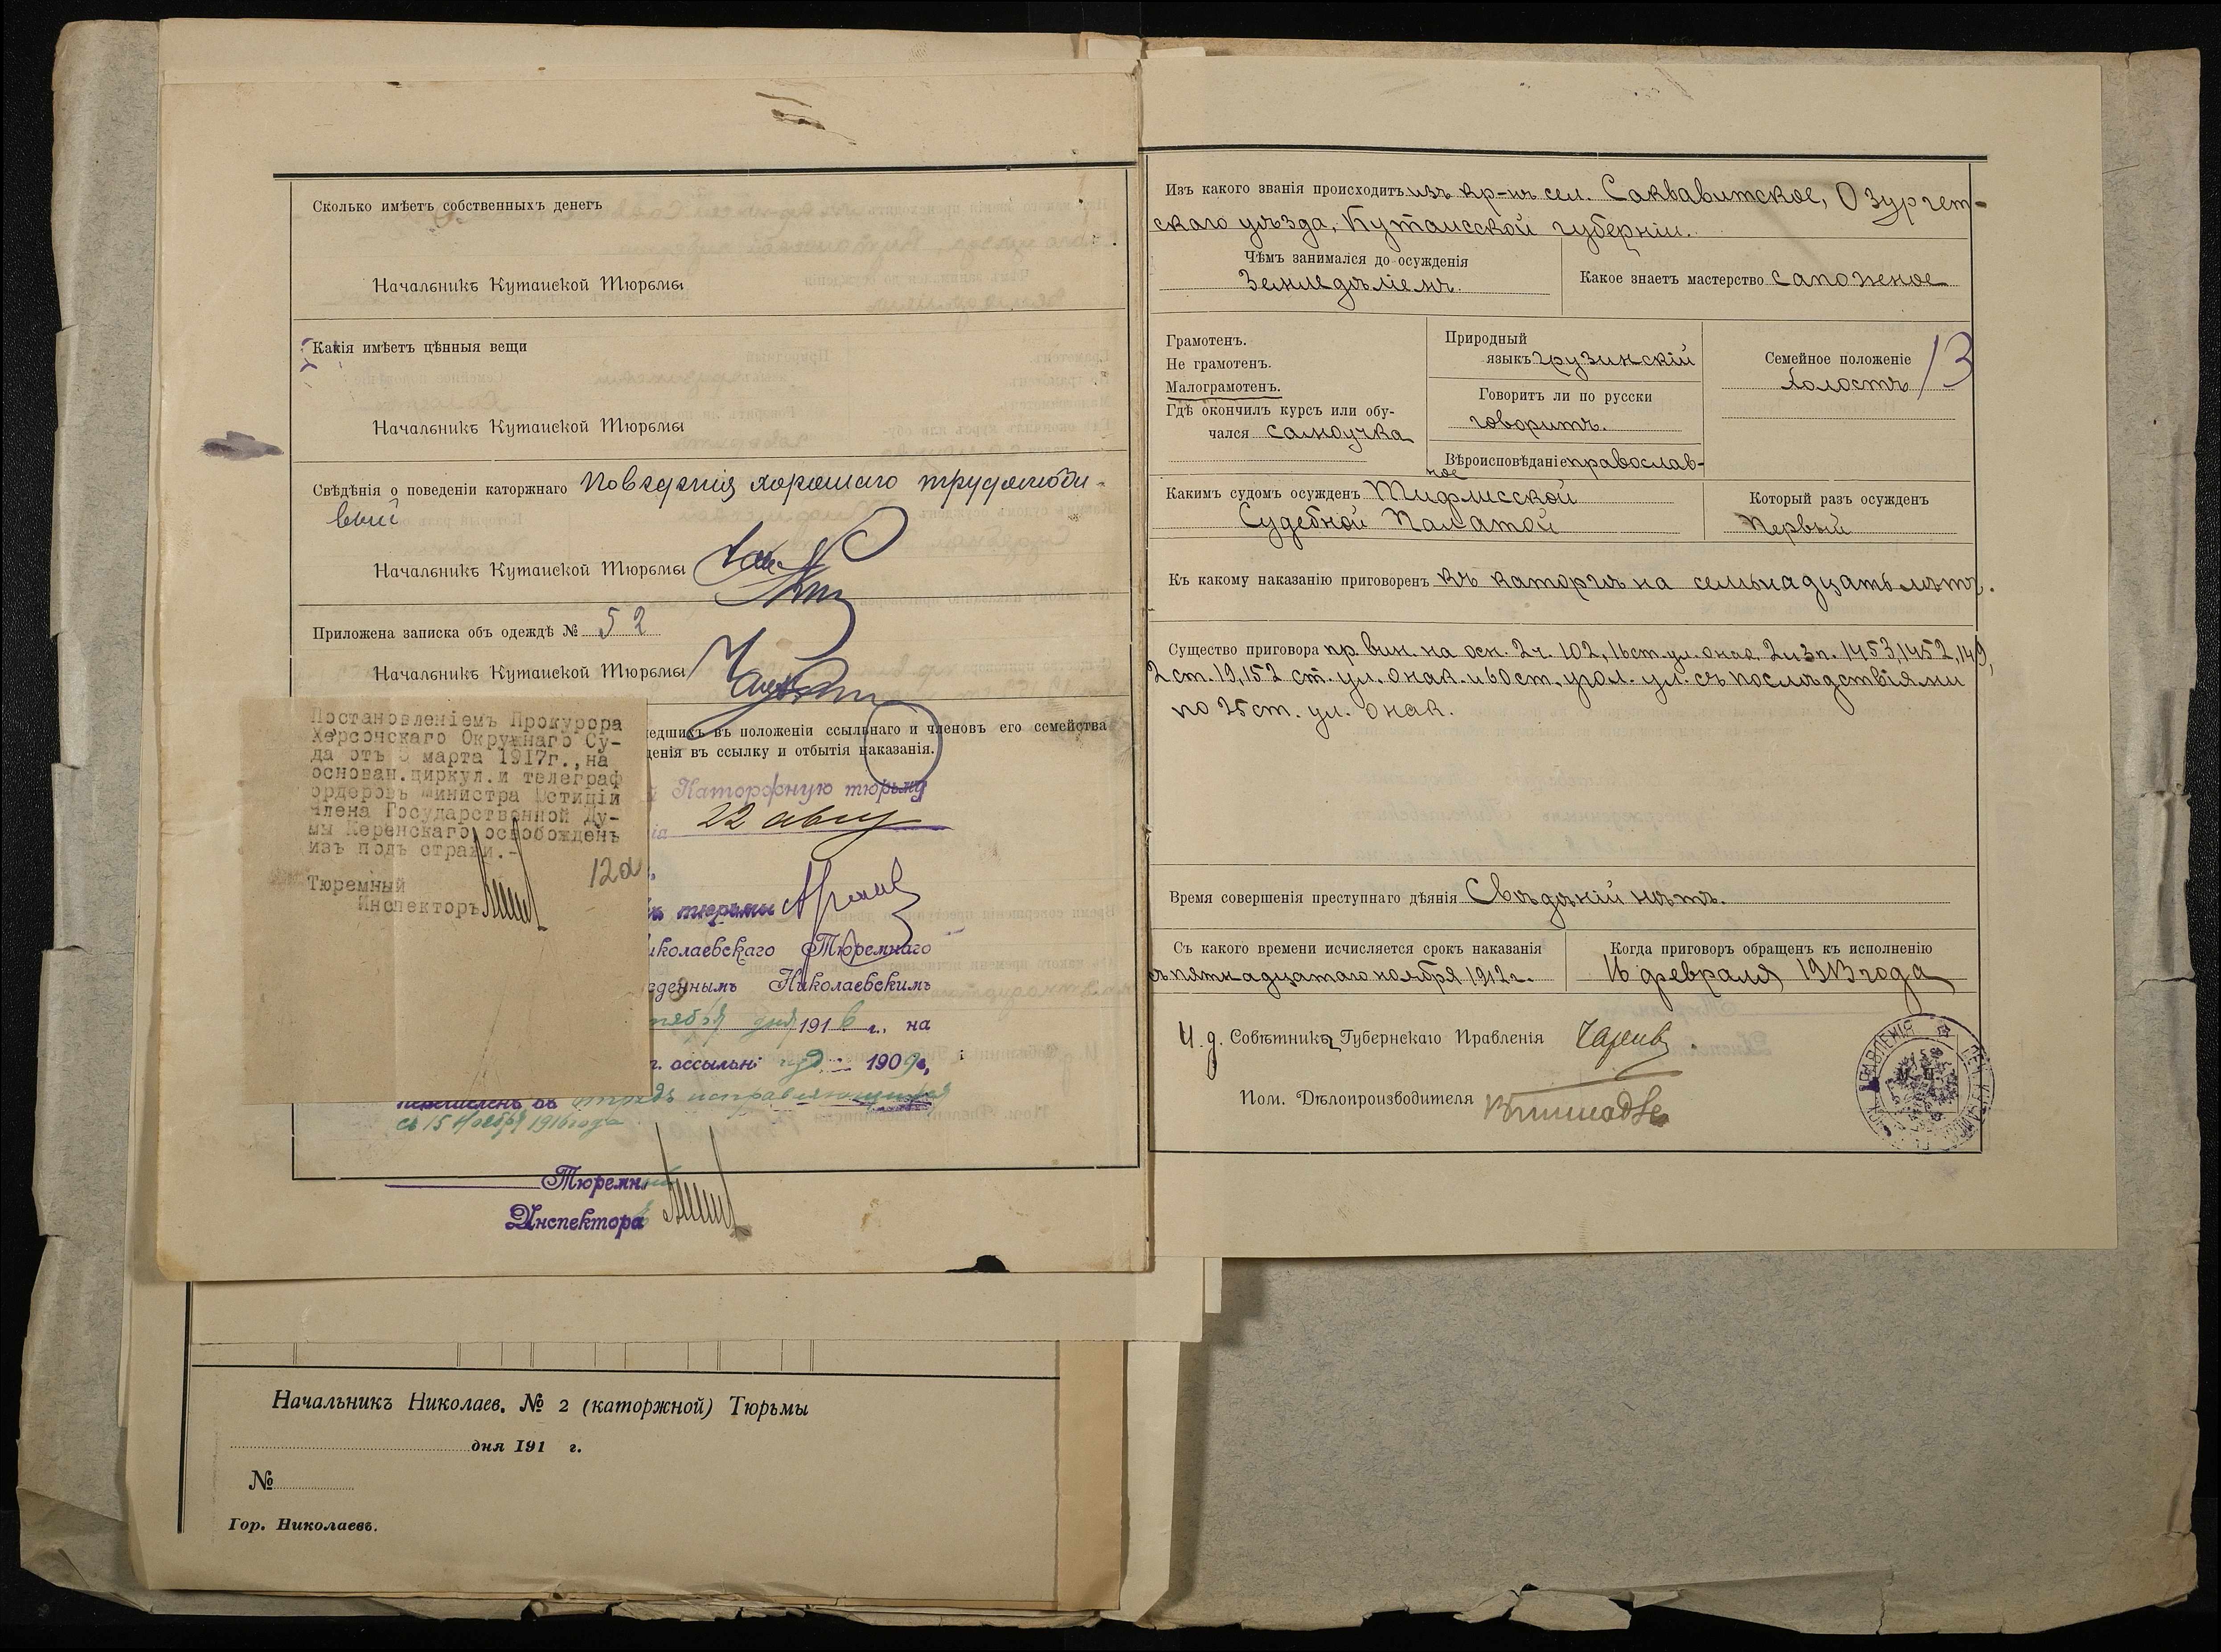 Сколько имѣетъ собственныхъ денегъ
Начальникъ Кутаиской Тюрьмы
Какія имѣетъ цѣнныя вещи
Начальникъ Кутаиской Тюрьмы
Свѣдѣнія о поведеніи каторжнаго Поведенія хорошаго трудолюби-
вый
Начальникъ Кутаиской Тюрьмы
Приложена записка объ одеждѣ № 52
Начальникъ Кутаиской Тюрьмы
едшихъ въ положеніи ссыльнаго и членовъ его семейства
денія въ ссылку и отбытія наказанія.
Постановленіемъ Прокурора
Херсонскаго Окружнаго Су-
да отъ марта 1917г., на
основан.циркул.и телеграф
ордеровъ Министра Юстиціи
Члена Государственной Ду-
мы Керенскаго освобожденъ
изъ подъ стражи.-
12а
Тюремный
Инспекторъ
Каторжную тюрьму
22 авгу
тюрьмы
иколаевскаго Тюремнаго
еденнымъ Николаевскимъ
тября дня 1916 г. на
г. о ссыльн 1909г.,
перечисленъ въ отрядъ исправляющихся
съ 15 Ноября 1916 года
Тюремный
Инспектора
Начальникъ Николаев. № 2 (каторжной) Тюрьмы
дня 191 г.
№
Гор. Николаевъ.
Изъ какого званія происходитъ изъ кр-нъ сел. Саквавитское, Озургет-
скаго уѣзда, Кутаисской губерніи.
Чѣмъ занимался до осужденія
Земледѣліемъ.
Какое знаетъ мастерство сапожное
Грамотенъ.
Не грамотенъ.
Малограмотенъ.
Гдѣ окончилъ курсъ или обу-
чался самоучка
Природный
языкъ грузинскій
Говоритъ ли по русски
говоритъ.
Вѣроисповѣданіе православ-
ное
Семейное положеніе
холостъ
13
Какимъ судомъ осужденъ Тифлисской
Судебной Палатой
Который разъ осужденъ
Первый
Къ какому наказанію приговоренъ къ каторгѣ на семьнадцать лѣтъ.
Существо приговора пр. вин. на осн. 2 ч. 102, 16 ст. ул. о нак. 2 и 3 п. 1453, 1452, 149,
2 ст. 19, 152 ст. ул. о нак. и 60 ст. угол. ул. съ послѣдствіями
по 25 ст. ул. о нак.
Время совершенія преступнаго дѣянія Свѣдѣній нѣтъ.
Съ какого времени исчисляется срокъ наказанія
съ пятнадцатаго ноября 1912 г.
Когда приговоръ обращенъ къ исполненію
16 февраля 1913 года
И. д. Совѣтника Губернскаго Правленія
Пом. Дѣлопроизводителя